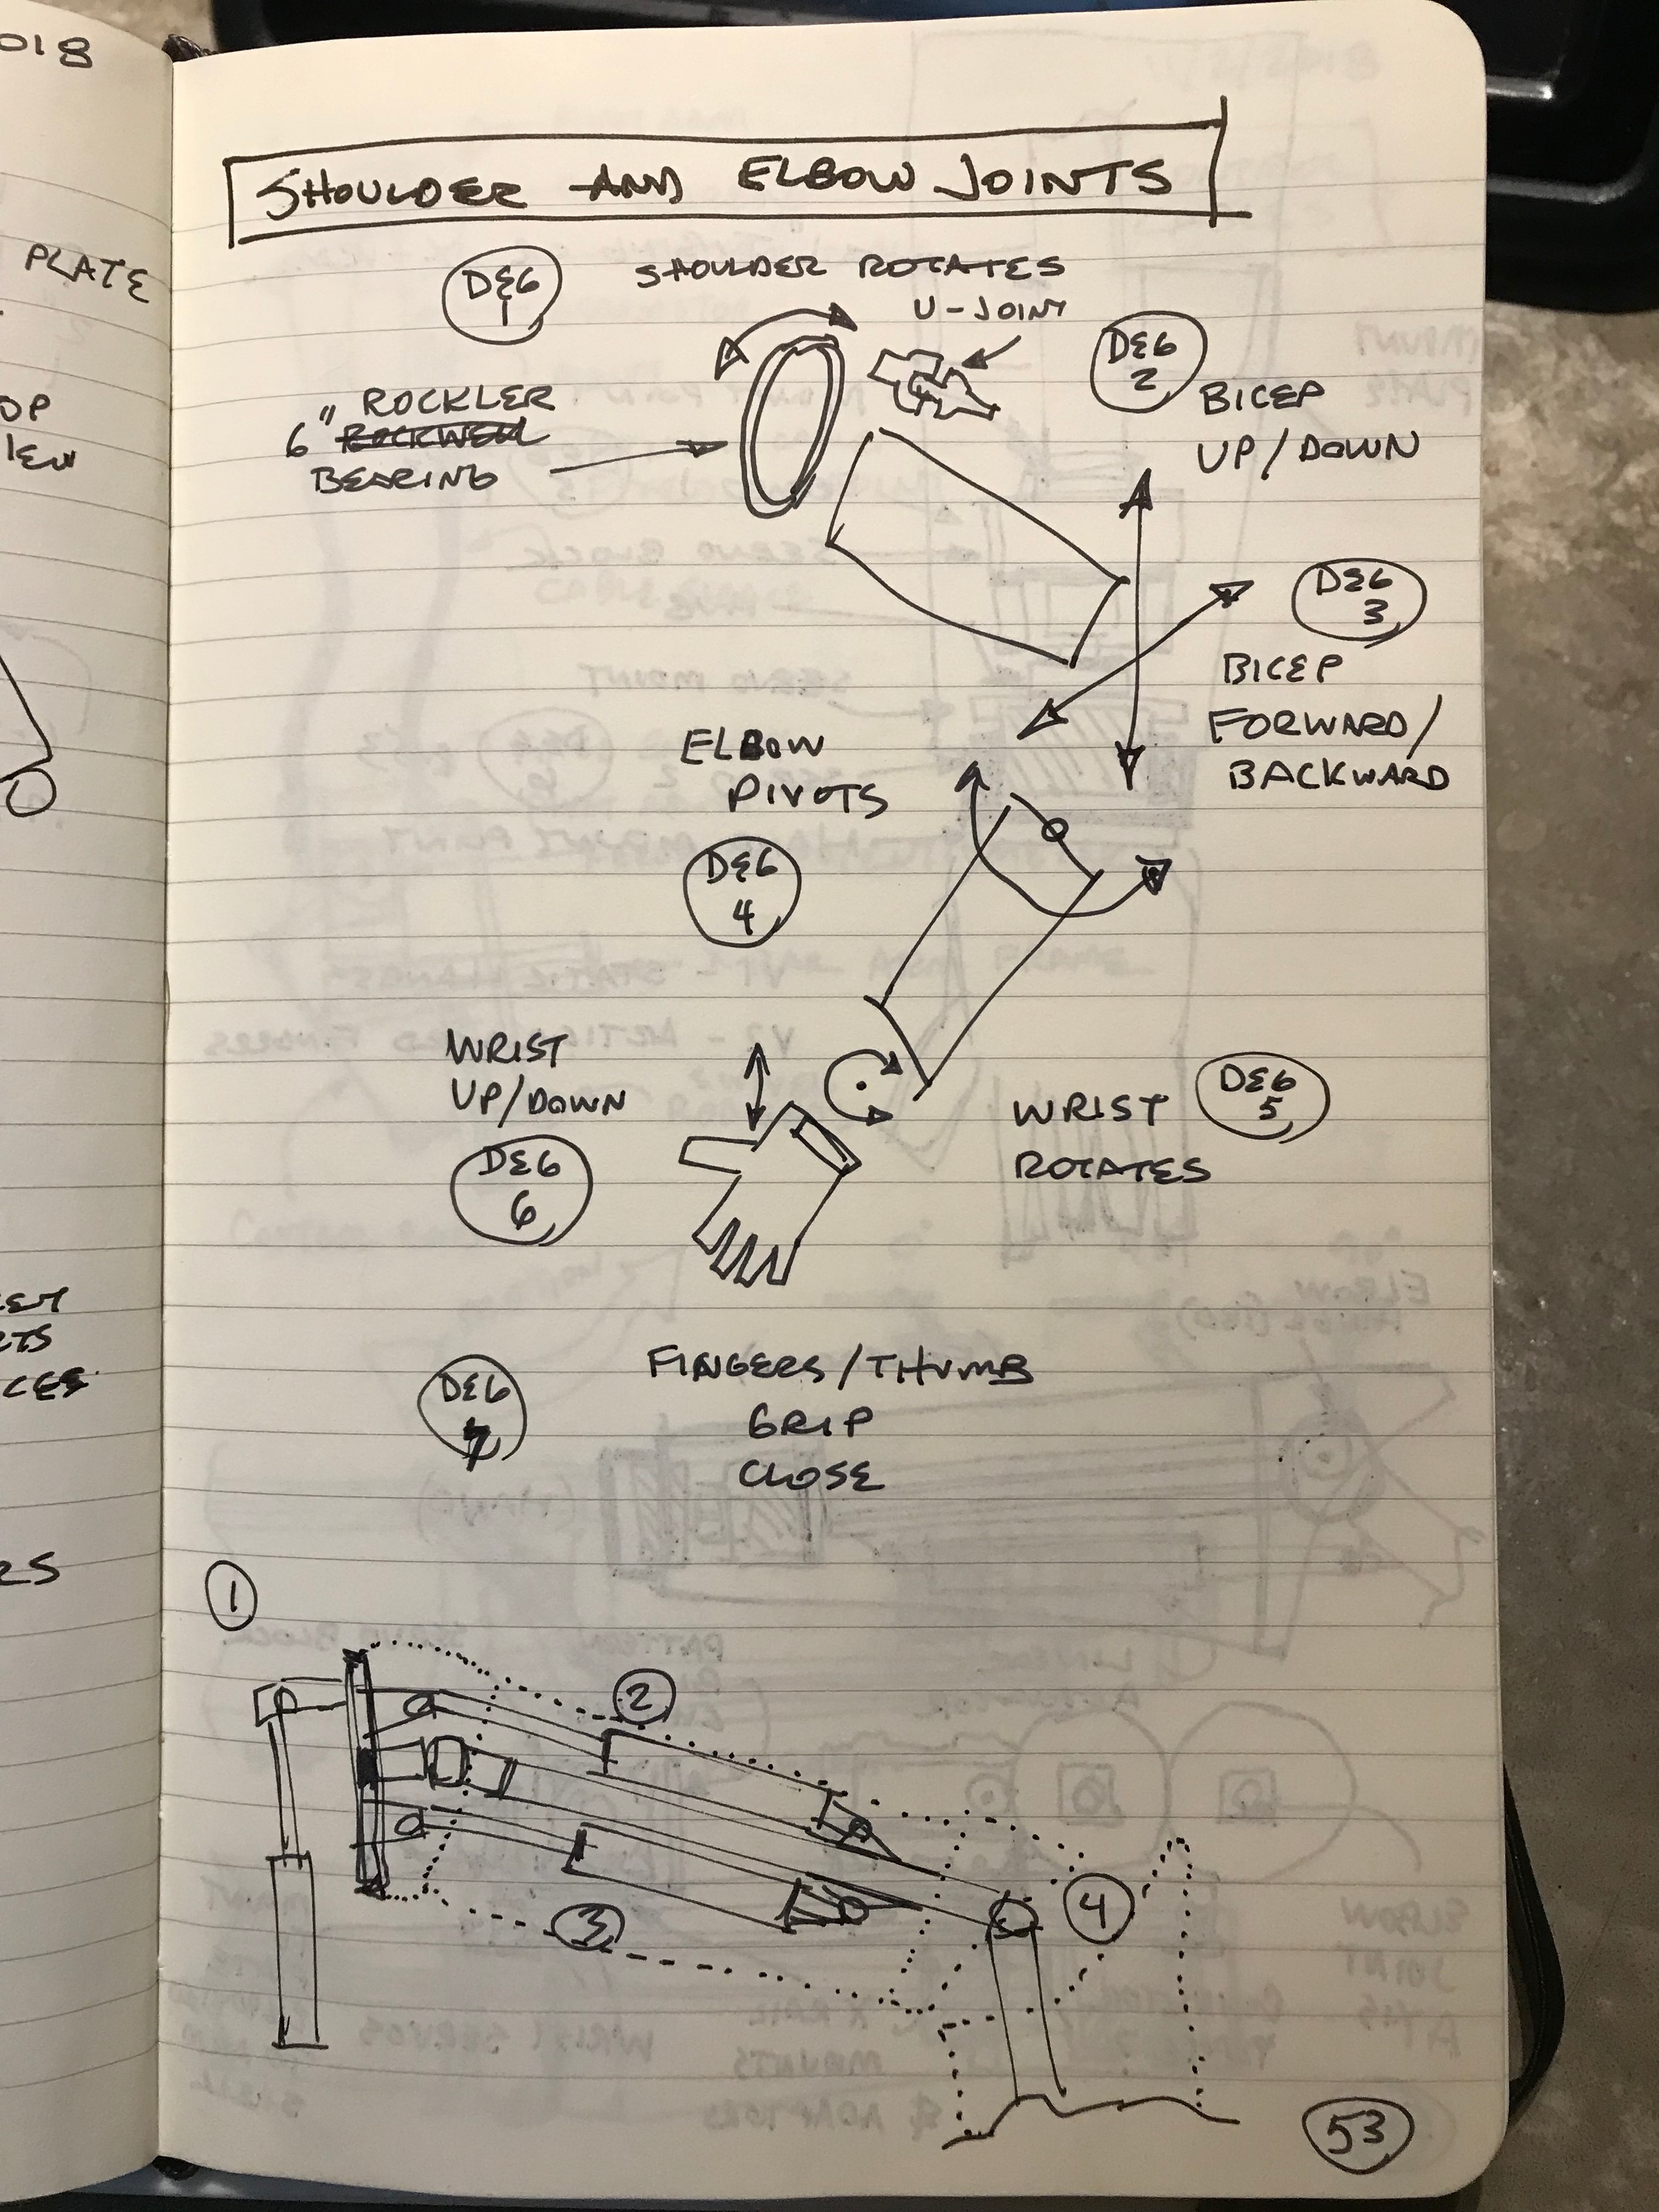 2018
PLATE
SHOULDER AND ELBOW JOINTS
DEG
1
SHOULDER ROTATES
U-JOINT
DEG
2
BICEP
UP/DOWN
ROCKLER
6" ROCKWELL
BEARING
DEG
3
BICEP
FORWARD/
BACKWARD
ELBOW
PIVOTS
DEG
4
WRIST
UP/DOWN
DEG
6
WRIST
ROTATES
DEG
5
DEG
7
FINGERS/THUMB
GRIP
CLOSE
1
2
3
4
53